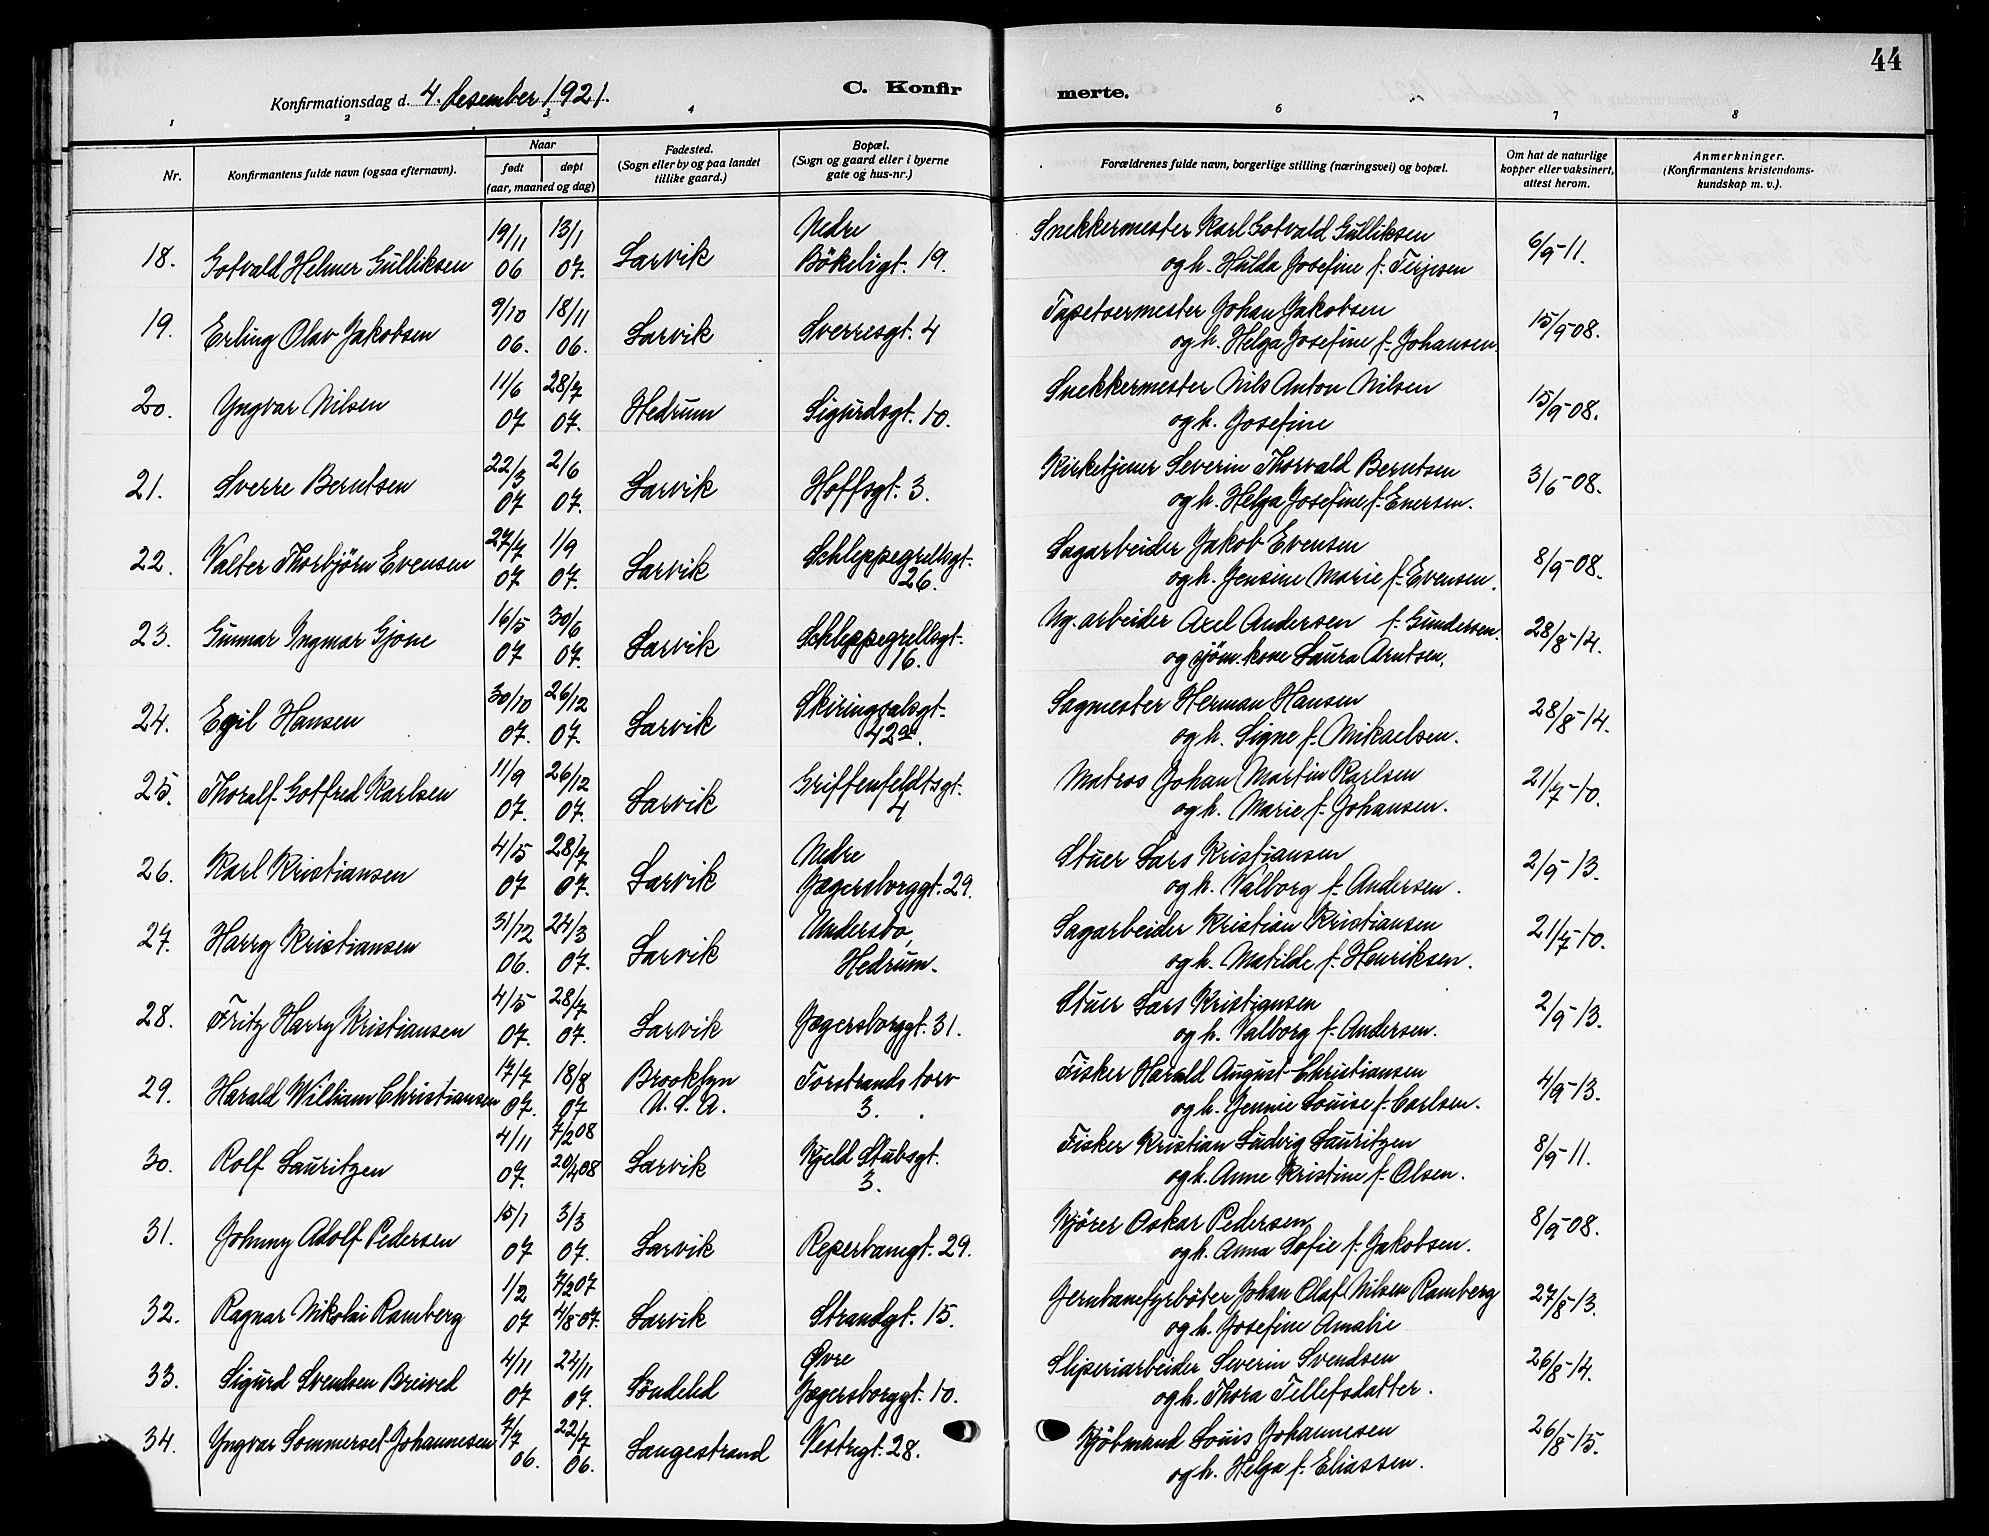 44
Konfirmationsdag d. 4. desember 1921.
C. Konfirmerte.
1 2 3 4 6 7 8
Nr.
Konfirmantens fulde navn (ogsaa efternavn).
Naar
født døpt
(aar, maaned og dag)
Fødested.
(Sogn eller by og paa landet
tillike gaard.)
Bopæl.
(Sogn og gaard eller i byerne
gate og hus-nr.)
Forældrenes fulde navn, borgerlige stilling (næringsvei) og bopæl.
Om hat de naturlige
kopper eller vaksinert,
attest herom.
Anmerkninger.
(Konfirmantens kristendoms-
kundskap m. v.).
19/11 13/1 Nedre Snekkermester Karl Gotvald Gulliksen
18. Gotvald Helmer Gulliksen 06 07. Larvik Bökeligt. 19. og h. Hulda Josefine f. Terjesen 6/9-11.
9/10 18/11 Tapetsermester Johan Jakobsen
19. Erling Olav Jakobsen 06. 06. Larvik Sverresgt. 4 og h. Helga Josefine f. Johansen. 15/9-08.
11/6 28/7 Snekkermester Nils Anton Nilsen
20. Yngvar Nilsen 07 07. Hedrum Sigurdsgt. 10. og h. Josefine 15/9-08.
22/3 2/6 Kirketjener Severin Thorvald Berntsen
21. Sverre Berntsen 07 07. Larvik Hoffsgt. 3. og h. Helga Josefine f. Enersen. 3/6-08.
27/7 1/9 Schleppegrellsgt. Sagarbeider Jakob Evensen
22. Valter Thorbjørn Evensen 07 07. Larvik 26. og h. Jensine Marie f. Evensen. 8/9-08.
16/5 30/6 Schleppegrellsgt. Ug. arbeider Axel Andersen f. Gundersen.
23. Gunnar Ingmar Gjone 07 07. Larvik 16. og sjöm. kone Laura Arntsen. 28/8-14.
30/10 26/12 Skiringsalsgt. Sagmester Herman Hansen
24. Egil Hansen 07. 07. Larvik 42a. og h. Signe f. Mikaelsen. 28/8-14.
11/9 26/12 Griffenfeldtsgt. Matros Johan Martin Karlsen
25. Thoralf Gotfred Karlsen 07. 07. Larvik 4 og h. Marie f. Johansen. 21/7-10.
4/5 28/7 Nedre Stuer Lars Kristiansen
26. Karl Kristiansen 07 07. Larvik Jægersborggt. 29. og h. Valborg f. Andersen. 2/9-13.
31/12 24/3 Undersbo, Sagarbeider Kristian Kristiansen
27. Harry Kristiansen 06. 07. Larvik Hedrum. og h. Matilde f. Henriksen. 21/7-10.
4/5 28/7 Stuer Lars Kristiansen
28. Fritz Harry Kristiansen 07. 07. Larvik Jægersborggt. 31. og h. Valborg f. Andersen. 2/9-13.
17/7 18/8 Brooklyn Torstrands torv Fisker Harald August Christiansen
29. Harald William Christiansen 07. 07 U. S. A. 3. og h. Jennie Louise f. Carlsen. 4/9-13.
4/11 7/2 08 Kjeld Stubsgt. Fisker Kristian Ludvig Lauritzen
30. Rolf Lauritzen 07. 20/4 08 Larvik 3. og h. Anne Kristine f. Olsen. 8/9-11.
15/1 3/3 Kjörer Oskar Pedersen
31. Johnny Adolf Pedersen 07 07. Larvik Reperbanegt. 29. og h. Anna Sofie f. Jakobsen. 8/9-08.
1/2 7/2 07 Jernbanefyrböter Johan Olaf Nilsen Ramberg
32. Ragnar Nikolai Ramberg 07 4/8-07. Larvik Strandgt. 15. og h. Josefine Amalie 27/8-13.
4/11 24/11 Øvre Sliperiarbeider Severin Svendsen
33. Sigurd Svendsen Breived 07 07. Söndeled Jægersborggt. 10. og h. Thora Tellefsdatter. 26/8-14.
7/7 22/7 Kjöbmand Louis Johannesen
34. Yngvar Sommersel Johannesen 06. 06. Langestrand Vestregt. 28. og h. Helga f. Eliassen. 26/8-15.